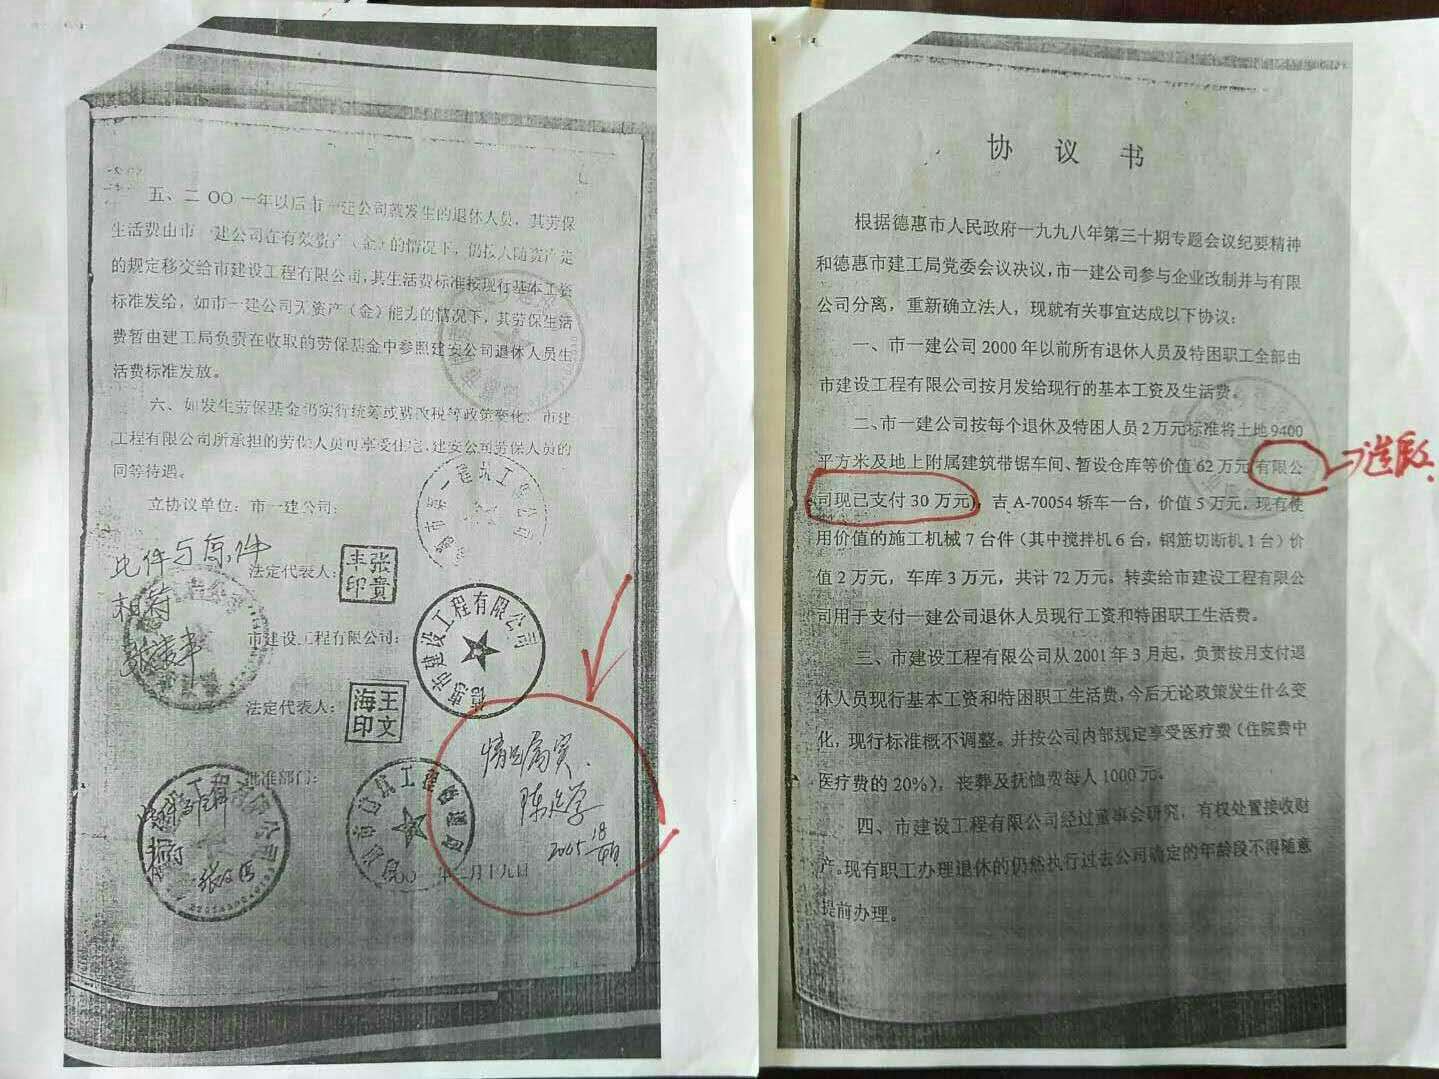 协议书
根据德惠市人民政府一九九八年第三十期专题会议纪要精神
和德惠市建工局党委会议决议，市一建公司参与企业改制并与有限
公司分离，重新确立法人，现就有关事宜达成以下协议：
一、市一建公司2000年以前所有退休人员及特困职工全部由
市建设工程有限公司按月发给现行的基本工资及生活费。
二、市一建公司按每个退休及特困人员2万元标准将土地9400
平方米及地上附属建筑带锯车间、暂设仓库等价值62万元(有限公
司现已支付30万元)，吉A-70054轿车一台，价值5万元，现有使
用价值的施工机械7台件（其中搅拌机6台，钢筋切断机1台）价
值2万元，车库3万元，共计72万元。转卖给市建设工程有限公
司用于支付一建公司退休人员现行工资和特困职工生活费。
三、市建设工程有限公司从2001年3月起，负责按月支付退
休人员现行基本工资和特困职工生活费，今后无论政策发生什么变
化，现行标准概不调整。并按公司内部规定享受医疗费（住院费中
医疗费的20%），丧葬及抚恤费每人1000元。
四、市建设工程有限公司经过董事会研究，有权处置接收财
产。现有职工办理退休的仍然执行过去公司确定的年龄段不得随意
提前办理。
五、二OO一年以后市一建公司新发生的退休人员，其劳保
生活费由市一建公司在有效资产（金）的情况下，仍按人随资产走
的规定移交给市建设工程有限公司，其生活费标准按现行基本工资
标准发给，如市一建公司无资产（金）能力的情况下，其劳保生活
费暂由建工局负责在收取的劳保基金中参照建安公司退休人员生
活费标准发放。
六、如发生劳保基金仍实行统筹或费改税等政策变化，市建
工程有限公司所承担的劳保人员可享受住宅、建安公司劳保人员的
同等待遇。
立协议单位：市一建公司：
此件与原件
相符
法定代表人：
张贵丰印
市建设工程有限公司：
德惠市建设工程有限公司
法定代表人：
王文海印
批准部门：
情况属实
2005
一年二月十九日